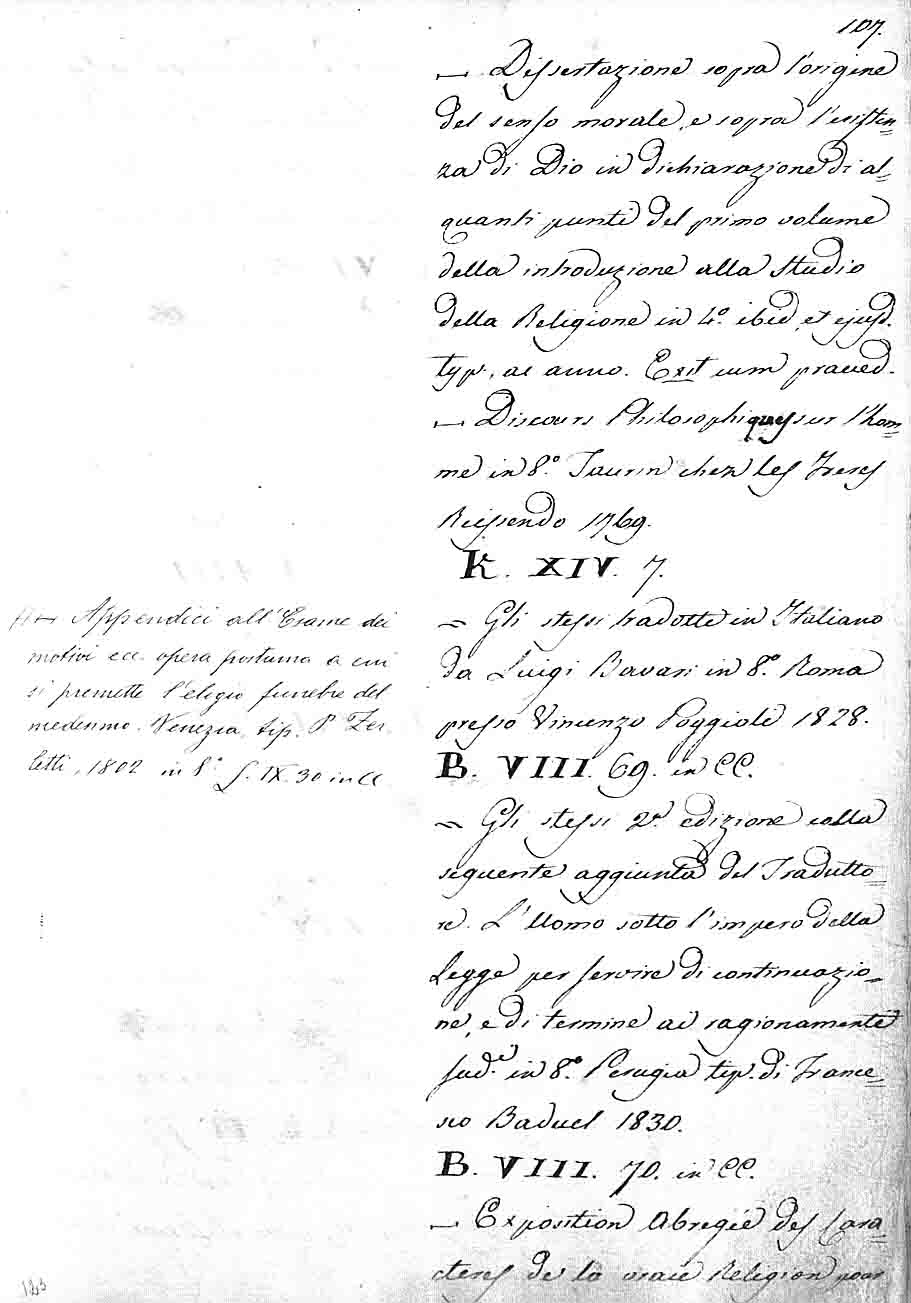 107.
— Dissertazione sopra l'origine
del senso morale, e sopra l'esisten=
za di Dio in dichiarazione di al=
quanti punti del primo volume
della introduzione alla Studio
della Religione in 4.° ibid. et ejusd.
typ., ac anno. Exit cum praeced.
— Discours Philosophiques sur l'hom=
me in 8.° Taurin chez les Freres
Reissendo 1769.
K. XIV. 7.
— Gli stessi tradotte in Italiano
da Luigi Bavari in 8.° Roma
presso Vincenzo Poggiole 1828.
B. VIII. 69. in CC.
— Gli stessi 2.ª edizione colla
seguente aggiunta del Tradutto=
re. L'Uomo sotto l'impero della
Legge per servire di continuazio=
ne, e di termine ai ragionamente
sud.i in 8.° Perugia tip. di France=
sco Baduel 1830.
B. VIII. 70. in CC.
— Exposition Abregée des Cara=
cteres de la vraie Religion pour
Appendici all'Esame dei
motivi ecc. opera postuma a cui
si premette l'elogio funebre del
medesimo. Venezia, tip. P. Zer
letti, 1802 in 8.° S. IX. 30 in CC
123